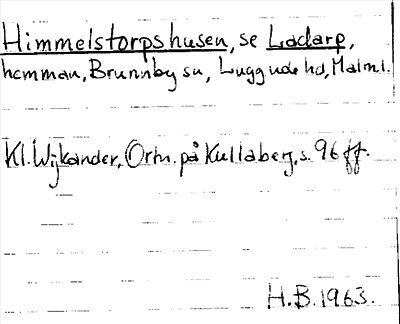 Himmelstorpshusen, se Ladarp,
hemman, Brunnby sn, Luggude hd, Malm.l.
Kl. Wijkander, Ortn. på Kullaberg, s. 96 ff.
H.B. 1963.